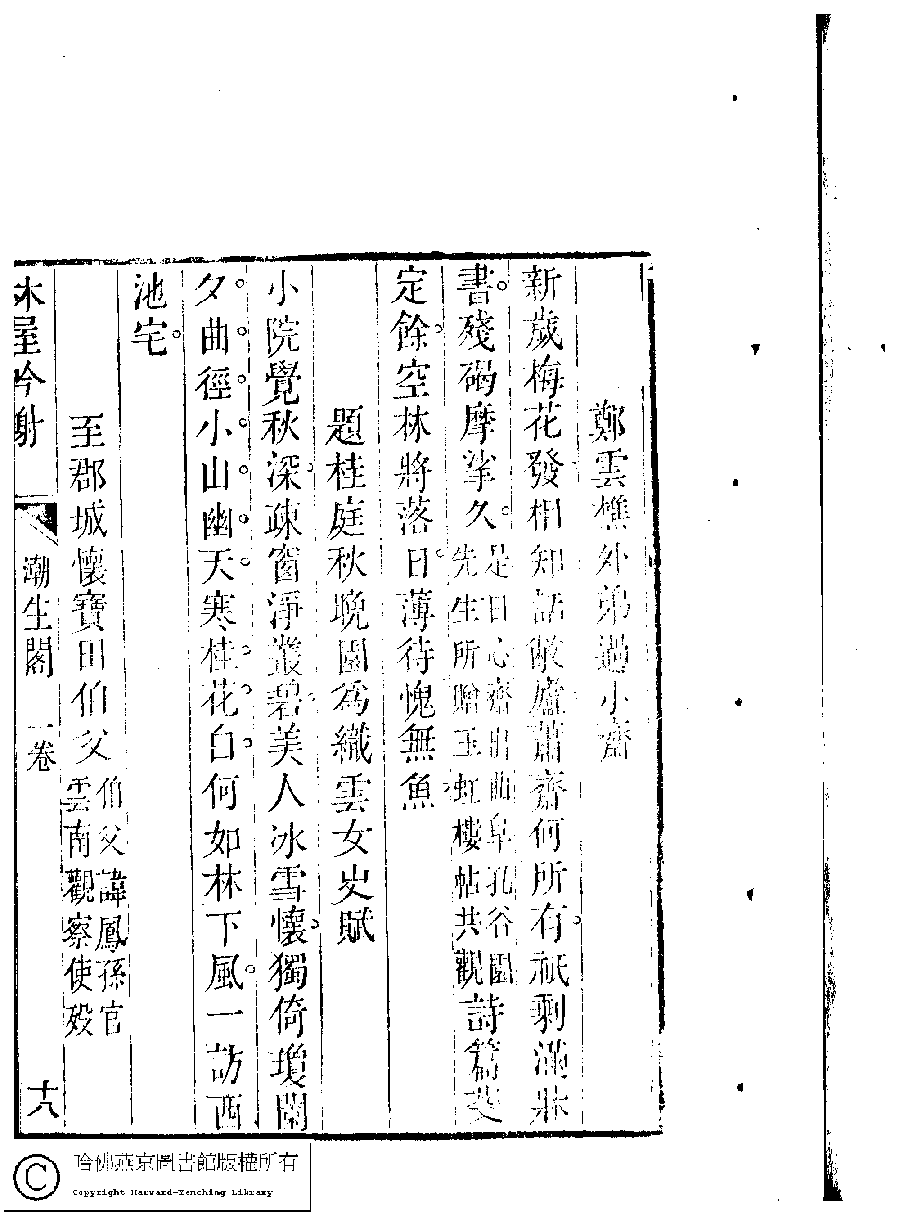 鄭雲樵外弟過小齋
新歲梅花發相知話敝廬蕭齋何所有。祇剩滿牀
書。殘碣摩挲久。是日心齋出曲阜孔谷園
先生所贈玉虹樓帖共觀詩篇
定餘。空林將落日。薄待愧無魚
題桂庭秋晚圖為織雲女史賦
小院覺秋深。疎窗淨叢碧。美人冰雪懷。獨倚瓊闌
夕。曲。徑。小。山。幽。天。寒。桂。花。白。何如林下風。一訪西
池宅。
至郡城懷寶田伯父伯父諱鳳孫官
雲南觀察使歿
林屋吟榭
潮生閣 一卷
十八
哈佛燕京圖書館版權所有
Copyright Harvard-Yenching Library